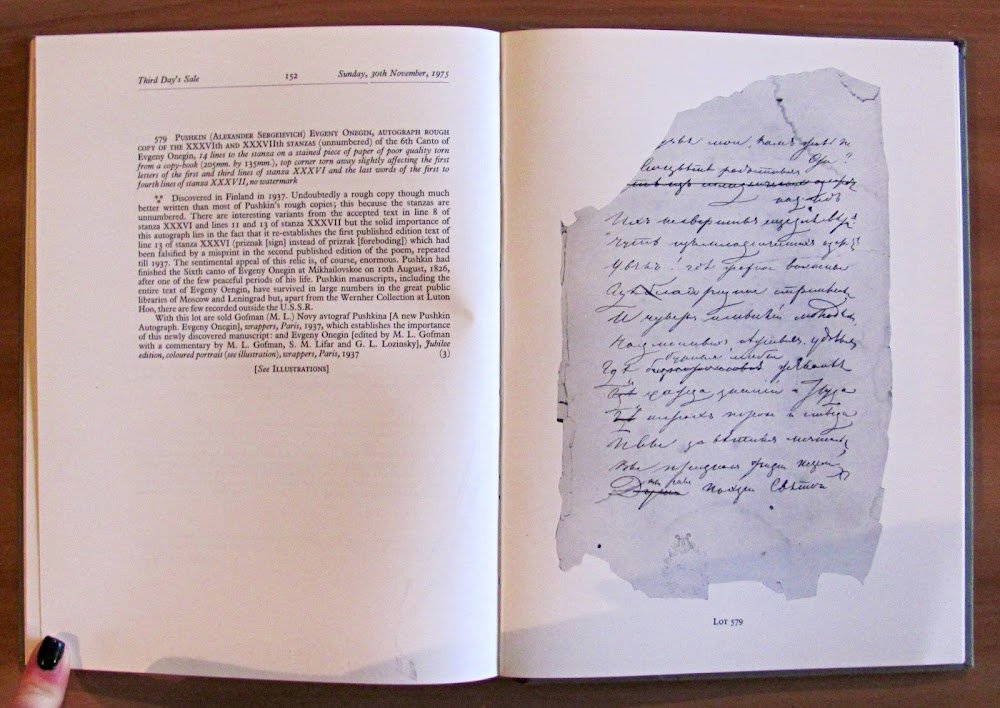 Third Day's Sale 152 Sunday, 30th November, 1975
579 PUSHKIN (ALEXANDER SERGEIEVICH) EVGENY ONEGIN, AUTOGRAPH ROUGH
COPY OF THE XXXVIth AND XXXVIIth STANZAS (unnumbered) of the 6th Canto of
Evgeny Onegin, 14 lines to the stanza on a stained piece of paper of poor quality torn
from a copy-book (205mm. by 135mm.), top corner torn away slightly affecting the first
letters of the first and third lines of stanza XXXVI and the last words of the first to
fourth lines of stanza XXXVII, no watermark
Discovered in Finland in 1937. Undoubtedly a rough copy though much
better written than most of Pushkin's rough copies; this because the stanzas are
unnumbered. There are interesting variants from the accepted text in line 8 of
stanza XXXVI and lines 11 and 13 of stanza XXXVII but the solid importance of
this autograph lies in the fact that it re-establishes the first published edition text of
line 13 of stanza XXXVI (priznak [sign] instead of prizrak [foreboding]) which had
been falsified by a misprint in the second published edition of the poem, repeated
till 1937. The sentimental appeal of this relic is, of course, enormous. Pushkin had
finished the Sixth canto of Evgeny Onegin at Mikhailovskoe on 10th August, 1826,
after one of the few peaceful periods of his life. Pushkin manuscripts, including the
entire text of Evgeny Oengin, have survived in large numbers in the great public
libraries of Moscow and Leningrad but, apart from the Wernher Collection at Luton
Hoo, there are few recorded outside the U.S.S.R.
With this lot are sold Gofman (M. L.) Novy avtograf Pushkina [A new Pushkin
Autograph. Evgeny Onegin], wrappers, Paris, 1937, which establishes the importance
of this newly discovered manuscript: and Evgeny Onegin [edited by M. L. Gofman
with a commentary by M. L. Gofman, S. M. Lifar and G. L. Lozinsky], Jubilee
edition, coloured portrait (see illustration), wrappers, Paris, 1937 (3)
[See ILLUSTRATIONS]
мои, вамъ
Ихъ не свершивъ еще для
Чуть изъ младенческихъ
гдѣ
Гдѣ благородное
И
Гдѣ
жажда знаній и труда
страхъ порока и стыда
И вы
Вы признакъ жизни
поэзіи святой
LOT 579